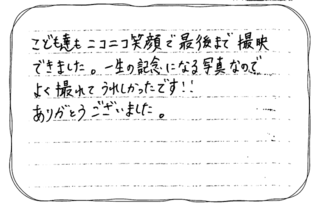 こども達も ニコニコ笑顔で最後まで撮映
できました。一生の記念になる写真なので
よく撮れて うれしかったです!!
ありがとうございました。